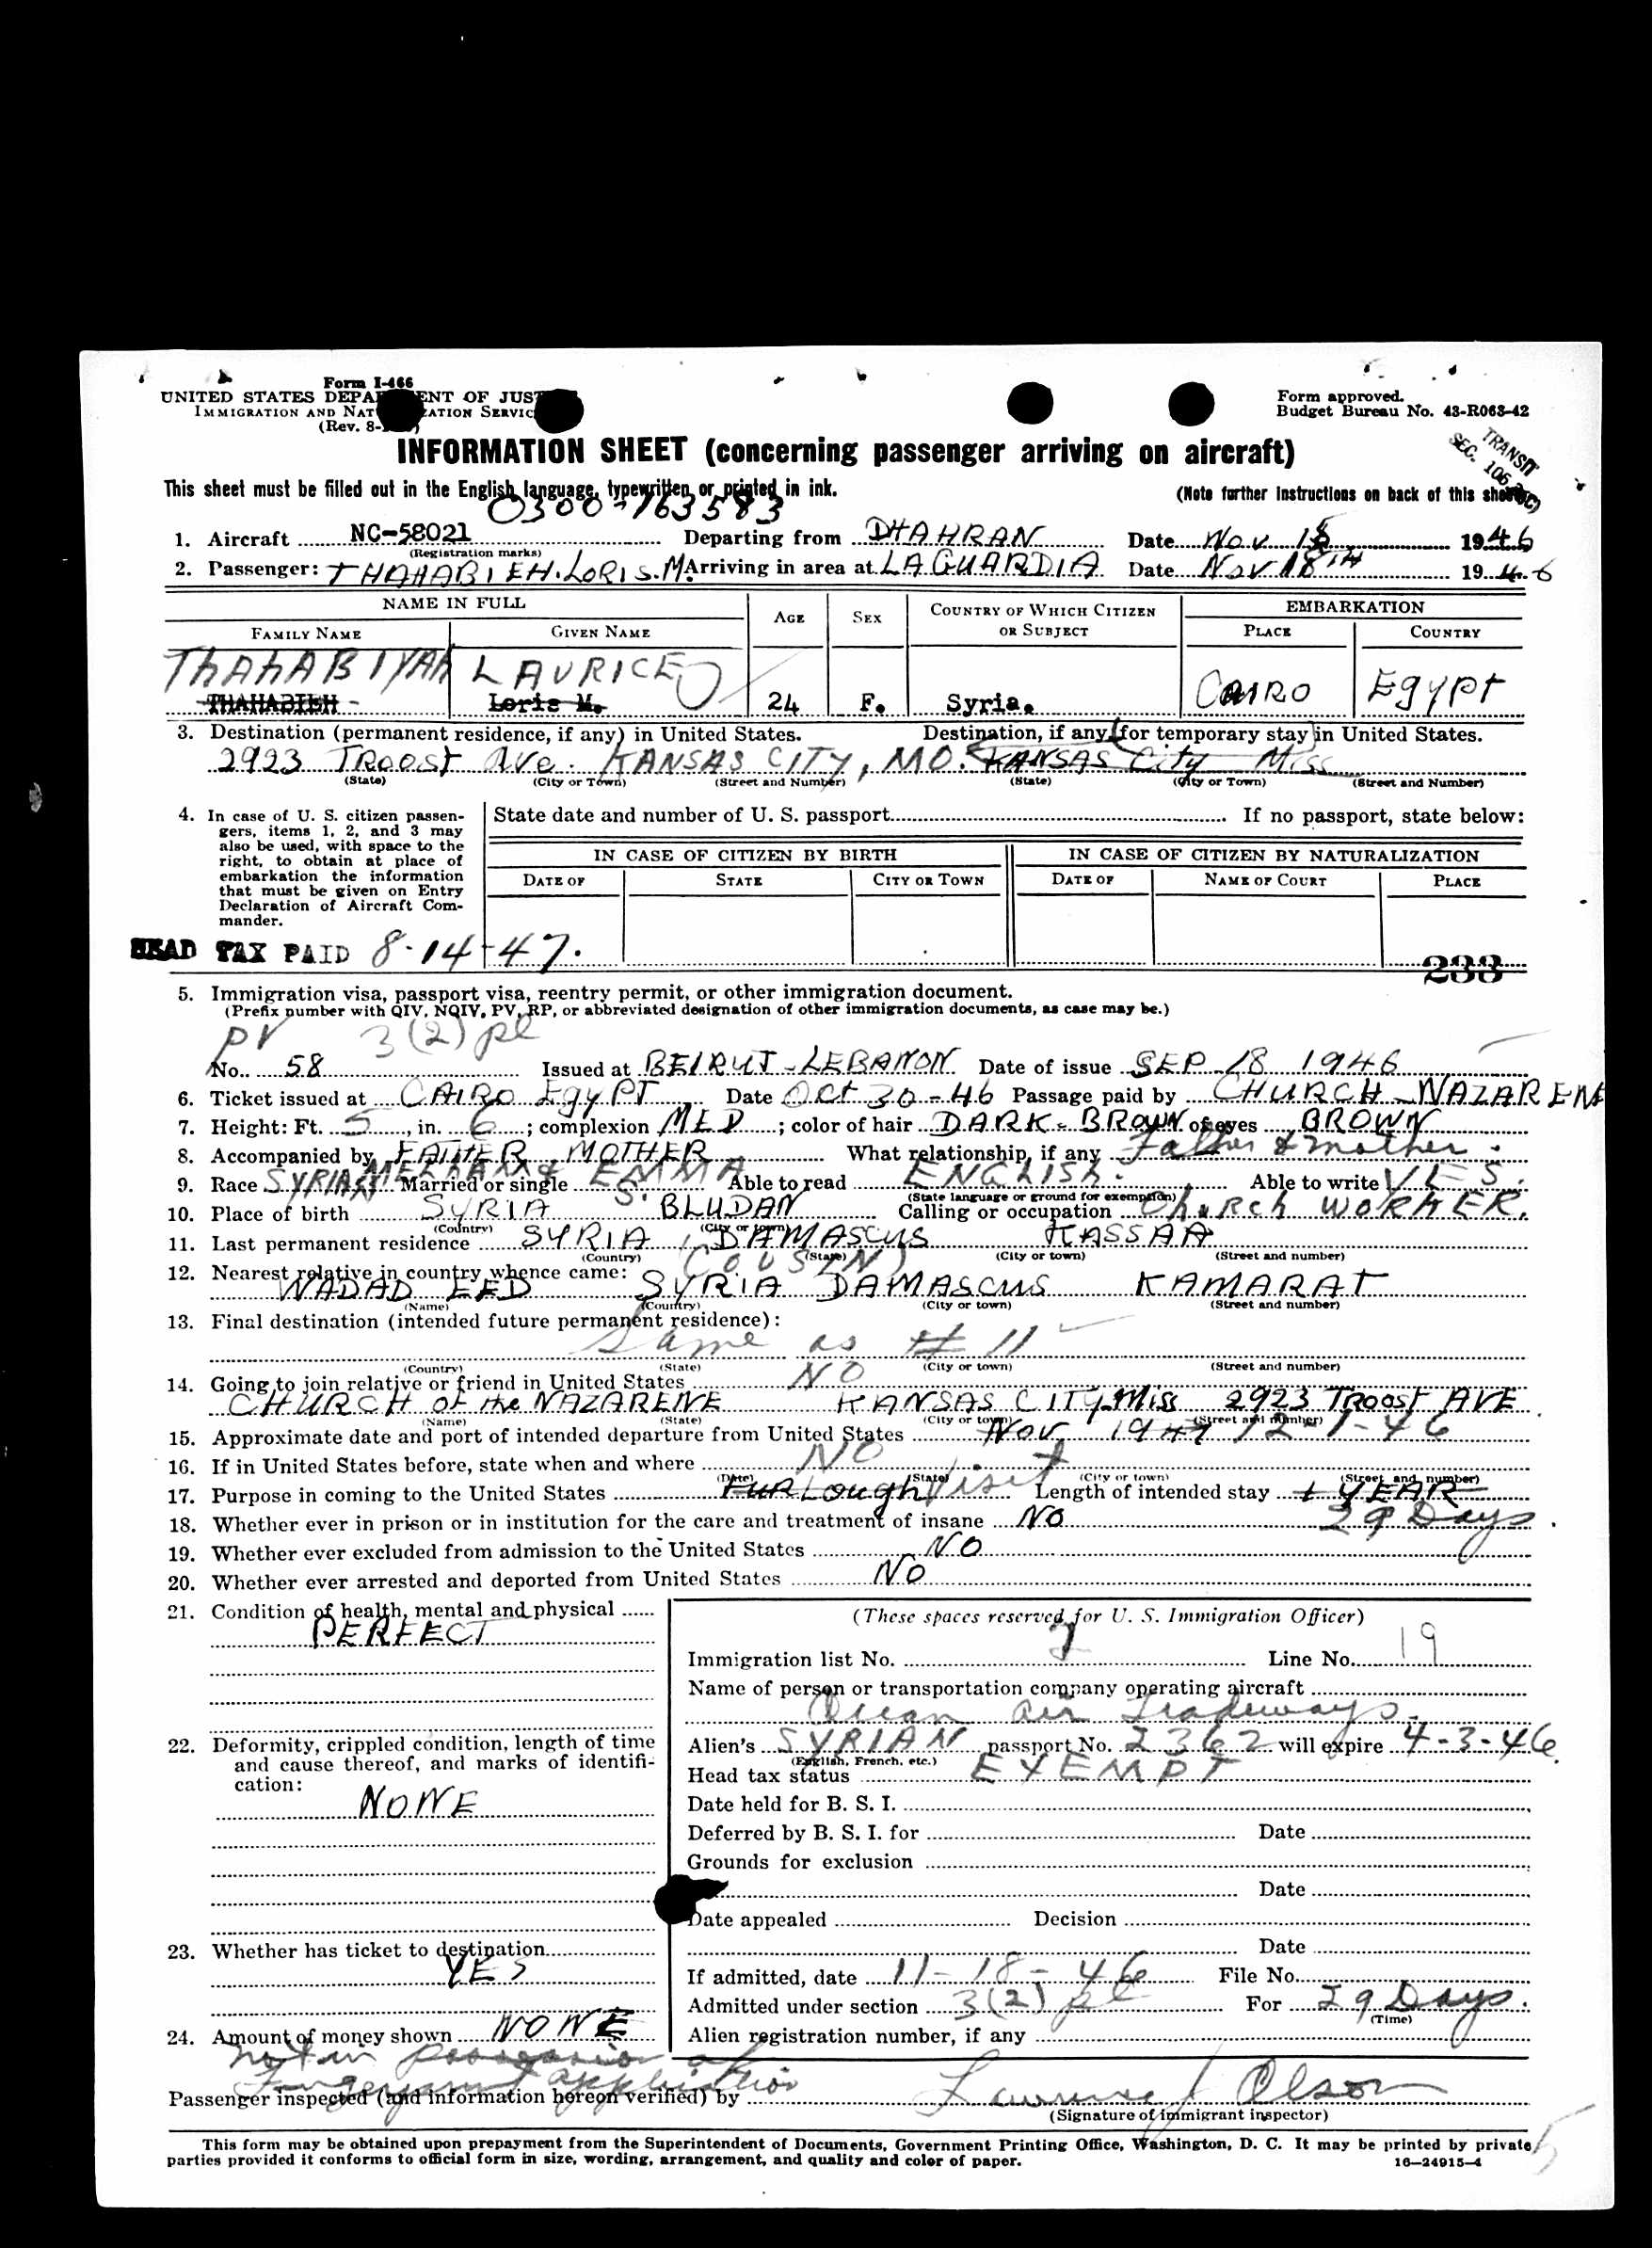 Form I-466
UNITED STATES DEPA ENT OF JUST
IMMIGRATION AND NAT ATION SERVIC
(Rev. 8-
Form approved.
Budget Bureau No. 43-R063-42
INFORMATION SHEET (concerning passenger arriving on aircraft)
TRANSIT
SEC. 106
This sheet must be filled out in the English language, typewritten or printed in ink.
(Note further instructions on back of this sheet)
0300-763583
1. Aircraft NC-58021 Departing from DHAHRAN Date Nov 15 1946
(Registration marks)
2. Passenger: THAHABIEH. LORIS. M. Arriving in area at LA GUARDIA Date Nov 18TH 1946
NAME IN FULL AGE SEX COUNTRY OF WHICH CITIZEN OR SUBJECT EMBARKATION
FAMILY NAME GIVEN NAME PLACE COUNTRY
THAHABIYAH LAURICE CAIRO Egypt
THAHABIEH Loris M. 24 F. Syria.
3. Destination (permanent residence, if any) in United States. Destination, if any (for temporary stay) in United States.
2923 TROOST Ave. KANSAS CITY, MO. KANSAS City Miss
(State) (City or Town) (Street and Number) (State) (City or Town) (Street and Number)
4. In case of U. S. citizen passen-
gers, items 1, 2, and 3 may
also be used, with space to the
right, to obtain at place of
embarkation the information
that must be given on Entry
Declaration of Aircraft Com-
mander.
State date and number of U. S. passport If no passport, state below:
IN CASE OF CITIZEN BY BIRTH IN CASE OF CITIZEN BY NATURALIZATION
DATE OF STATE CITY OR TOWN DATE OF NAME OF COURT PLACE
HEAD TAX PAID 8-14-47.
233
5. Immigration visa, passport visa, reentry permit, or other immigration document.
(Prefix number with QIV, NQIV, PV, RP, or abbreviated designation of other immigration documents, as case may be.)
PV 3(2) pl
No. 58 Issued at BEIRUT-LEBANON Date of issue SEP 18 1946
6. Ticket issued at CAIRO EgyPT Date Oct 30-46 Passage paid by CHURCH-NAZARENE
7. Height: Ft. 5, in. 6; complexion MED; color of hair DARK-BROWN of eyes BROWN
8. Accompanied by FATHER, MOTHER What relationship, if any Father & mother.
9. Race SYRIAN Married or single S. Able to read ENGLISH. Able to write YES.
EMMA
(State language or ground for exemption)
10. Place of birth SYRIA BLUDAN Calling or occupation Church WORKER.
(Country) (City or town)
11. Last permanent residence SYRIA, DAMASCUS KASSAA
(Country) (State) (City or town) (Street and number)
(COUSIN)
12. Nearest relative in country whence came:
WADAD EED SYRIA DAMASCUS KAMARAT
(Name) (Country) (City or town) (Street and number)
13. Final destination (intended future permanent residence):
Same as #11
(Country) (State) (City or town) (Street and number)
14. Going to join relative or friend in United States NO
CHURCH OF the NAZARENE KANSAS CITY Miss 2923 TROOST AVE
(Name) (State) (City or town) (Street and number)
15. Approximate date and port of intended departure from United States Nov 1947 12-1-46
16. If in United States before, state when and where NO
(Date) (State) (City or town) (Street and number)
17. Purpose in coming to the United States FURLough Visit Length of intended stay 1 YEAR
29 Days.
18. Whether ever in prison or in institution for the care and treatment of insane NO
19. Whether ever excluded from admission to the United States NO
20. Whether ever arrested and deported from United States NO
21. Condition of health, mental and physical
PERFECT
22. Deformity, crippled condition, length of time
and cause thereof, and marks of identifi-
cation:
NONE
23. Whether has ticket to destination
YES
24. Amount of money shown NONE
(These spaces reserved for U. S. Immigration Officer)
Immigration list No. Line No. 19
Name of person or transportation company operating aircraft
Ocean Air Tradeways
Alien's SYRIAN passport No. 2362 will expire 4-3-46.
(English, French, etc.)
Head tax status EXEMPT
Date held for B. S. I.
Deferred by B. S. I. for Date
Grounds for exclusion
Date
Date appealed Decision
Date
If admitted, date 11-18-46 File No.
Admitted under section 3(2) pl For 29 Days.
(Time)
Alien registration number, if any
not in possession of
Fingerprint application
Passenger inspected (and information hereon verified) by Lawrence J Olson
(Signature of immigrant inspector)
This form may be obtained upon prepayment from the Superintendent of Documents, Government Printing Office, Washington, D. C. It may be printed by private
parties provided it conforms to official form in size, wording, arrangement, and quality and color of paper. 16—24915-4